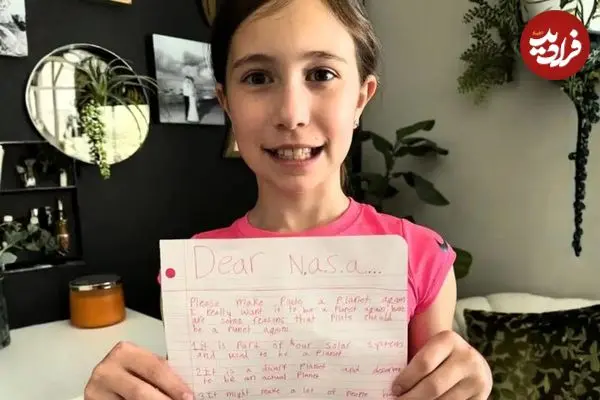 فرادید
Dear N.as.a....
Please make Pluto a Planet again
I really want it to be a Planet again, here
are some reasons that Pluto should
be a Planet again.
1 it is Part of our Solar Systems
and used to be a Planet
2 It is a dwarf Planet and deserves
to be an actual Planet
3 It might make a lot of People